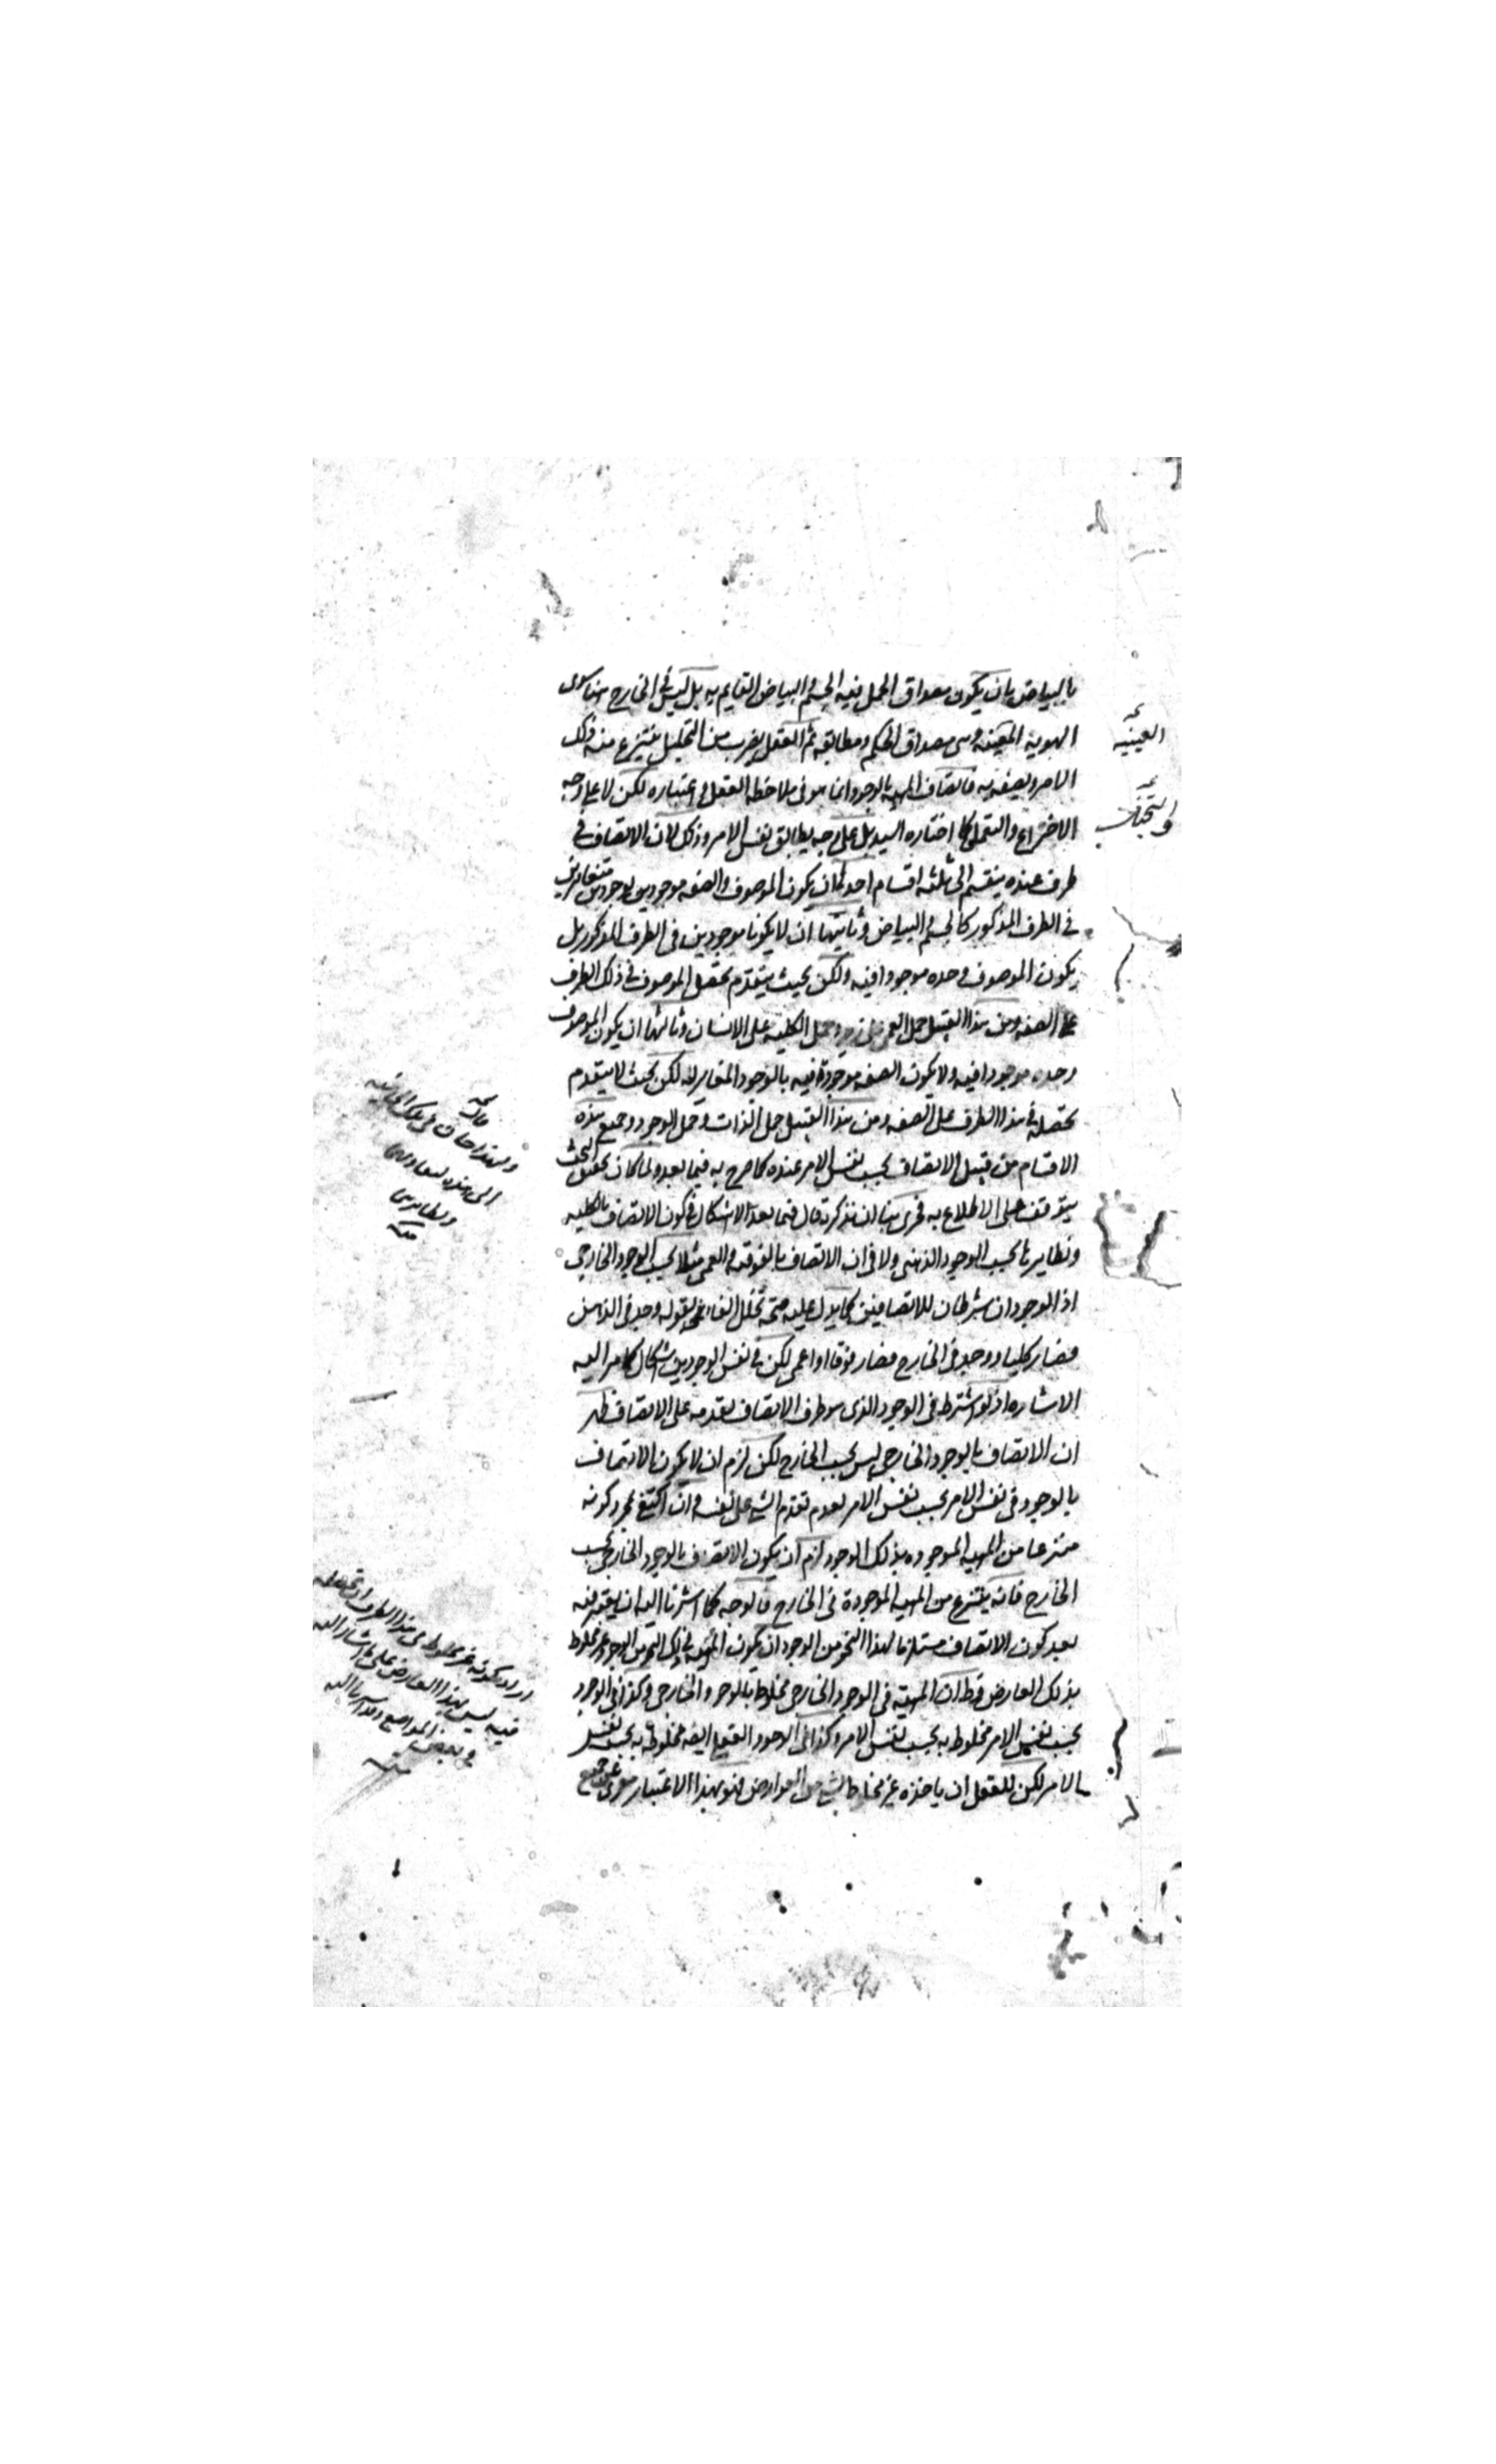 بالبياض بان يكون مصداق الحمل فيه الجسم والبياض القايم به بل ليس في الخارج هنا سوى
الهوية العينية وهي مصداق الحكم ومطابقه ثم العقل بضرب من التحليل ينتزع منه ذلك
الامر ويصفه به فاتصاف المهية بالوجود انما هو في ملاحظة العقل و اعتباره لكن لا على وجه
الاختراع والتعمل كما اختاره السيد بل على وجه يطابق نفس الامر وذلك لان الاتصاف في
ظرف عنده ينقسم الى ثلثة اقسام احدها ان يكون الموصوف والصفه موجودين بوجودين متغايرين
في الظرف المذكور كالجسم والبياض وثانيتها ان لا يكونا موجودين في الظرف المذكور بل
يكون الموصوف وحده موجودا فيه ولكن بحيث يتقدم تحصل الموصوف في ذلك الظرف
على الصفه ومن هذا القبيل حمل العمى على زيد وحمل الكلية على الانسان وثالثها ان يكون الموصوف
وحده موجودا فيه ولا يكون الصفه موجودة فيه بالوجود المغاير له لكن بحيث لا يتقدم
تحصله في هذا الظرف على الصفه ومن هذا القبيل حمل الذات وحمل الوجود وجميع هذه
الاقسام من قبيل الاتصاف بحسب نفس الامر عنده كما صرح به فيما بعد ولما كان تحقيق البحث
يتوقف على الاطلاع به فحرى بنا ان نذكره قال فيما بعد الاشكال في كون الاتصاف بالكلية
ونظايرها بحسب الوجود الذهني ولا في ان الاتصاف بالفوقية والعمى مثلا بحسب الوجود الخارجي
اذ الوجودان شرطان للاتصافين كما يدل عليه صحة تخلل الفاء بقوله وجد في الذهن
فصار كليا ووجد في الخارج فصار فوقا او اعمى لكن في نفس الوجودين اشكال كما مر اليه
الاشاره اذ لو اشترط في الوجود الذي هو ظرف الاتصاف تقدمه على الاتصاف ظهر
ان الاتصاف بالوجود الخارجي ليس بحسب الخارج لكن لزم ان لا يكون الاتصاف
بالوجود في نفس الامر بحسب نفس الامر لعدم تقدم الشي على نفسه وان اكتفي بمجرد كونه
منتزعا من المهية الموجوده بذلك الوجود لزم ان يكون الاتصاف بالوجود الخارجي بحسب
الخارج فانه ينتزع من المهية الموجودة في الخارج فالوجه كما اشرنا اليه ان يعتبر فيه
بعد كون الاتصاف مستلزما لهذا النحو من الوجود ان يكون المهية في ذلك النحو من الوجود غير مخلوط
بذلك العارض فظ ان المهية في الوجود الخارجي مخلوط بالوجود الخارجي وكذا في الوجود
بحسب نفس الامر مخلوط به بحسب نفس الامر وكذا في الوجود العقلي ايضه مخلوطة به بحسب نفس
الامر لكن للعقل ان ياخذه غير مخلوط بشي من العوارض فهو بهذا الاعتبار معرى عن جميع
العينيه